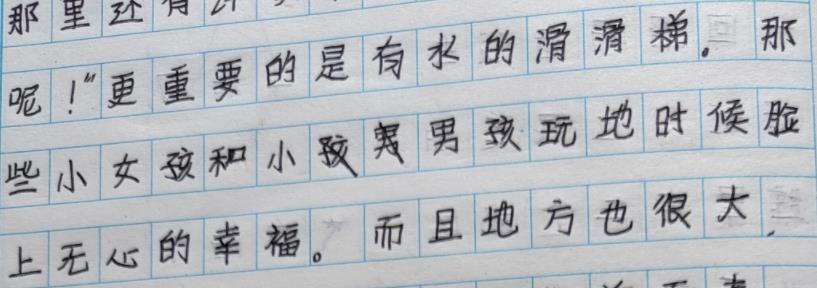 那里还有
呢！”更重要的是有水的滑滑梯。那
些小女孩和小男孩玩地时候脸
上无心的幸福。而且地方也很大，